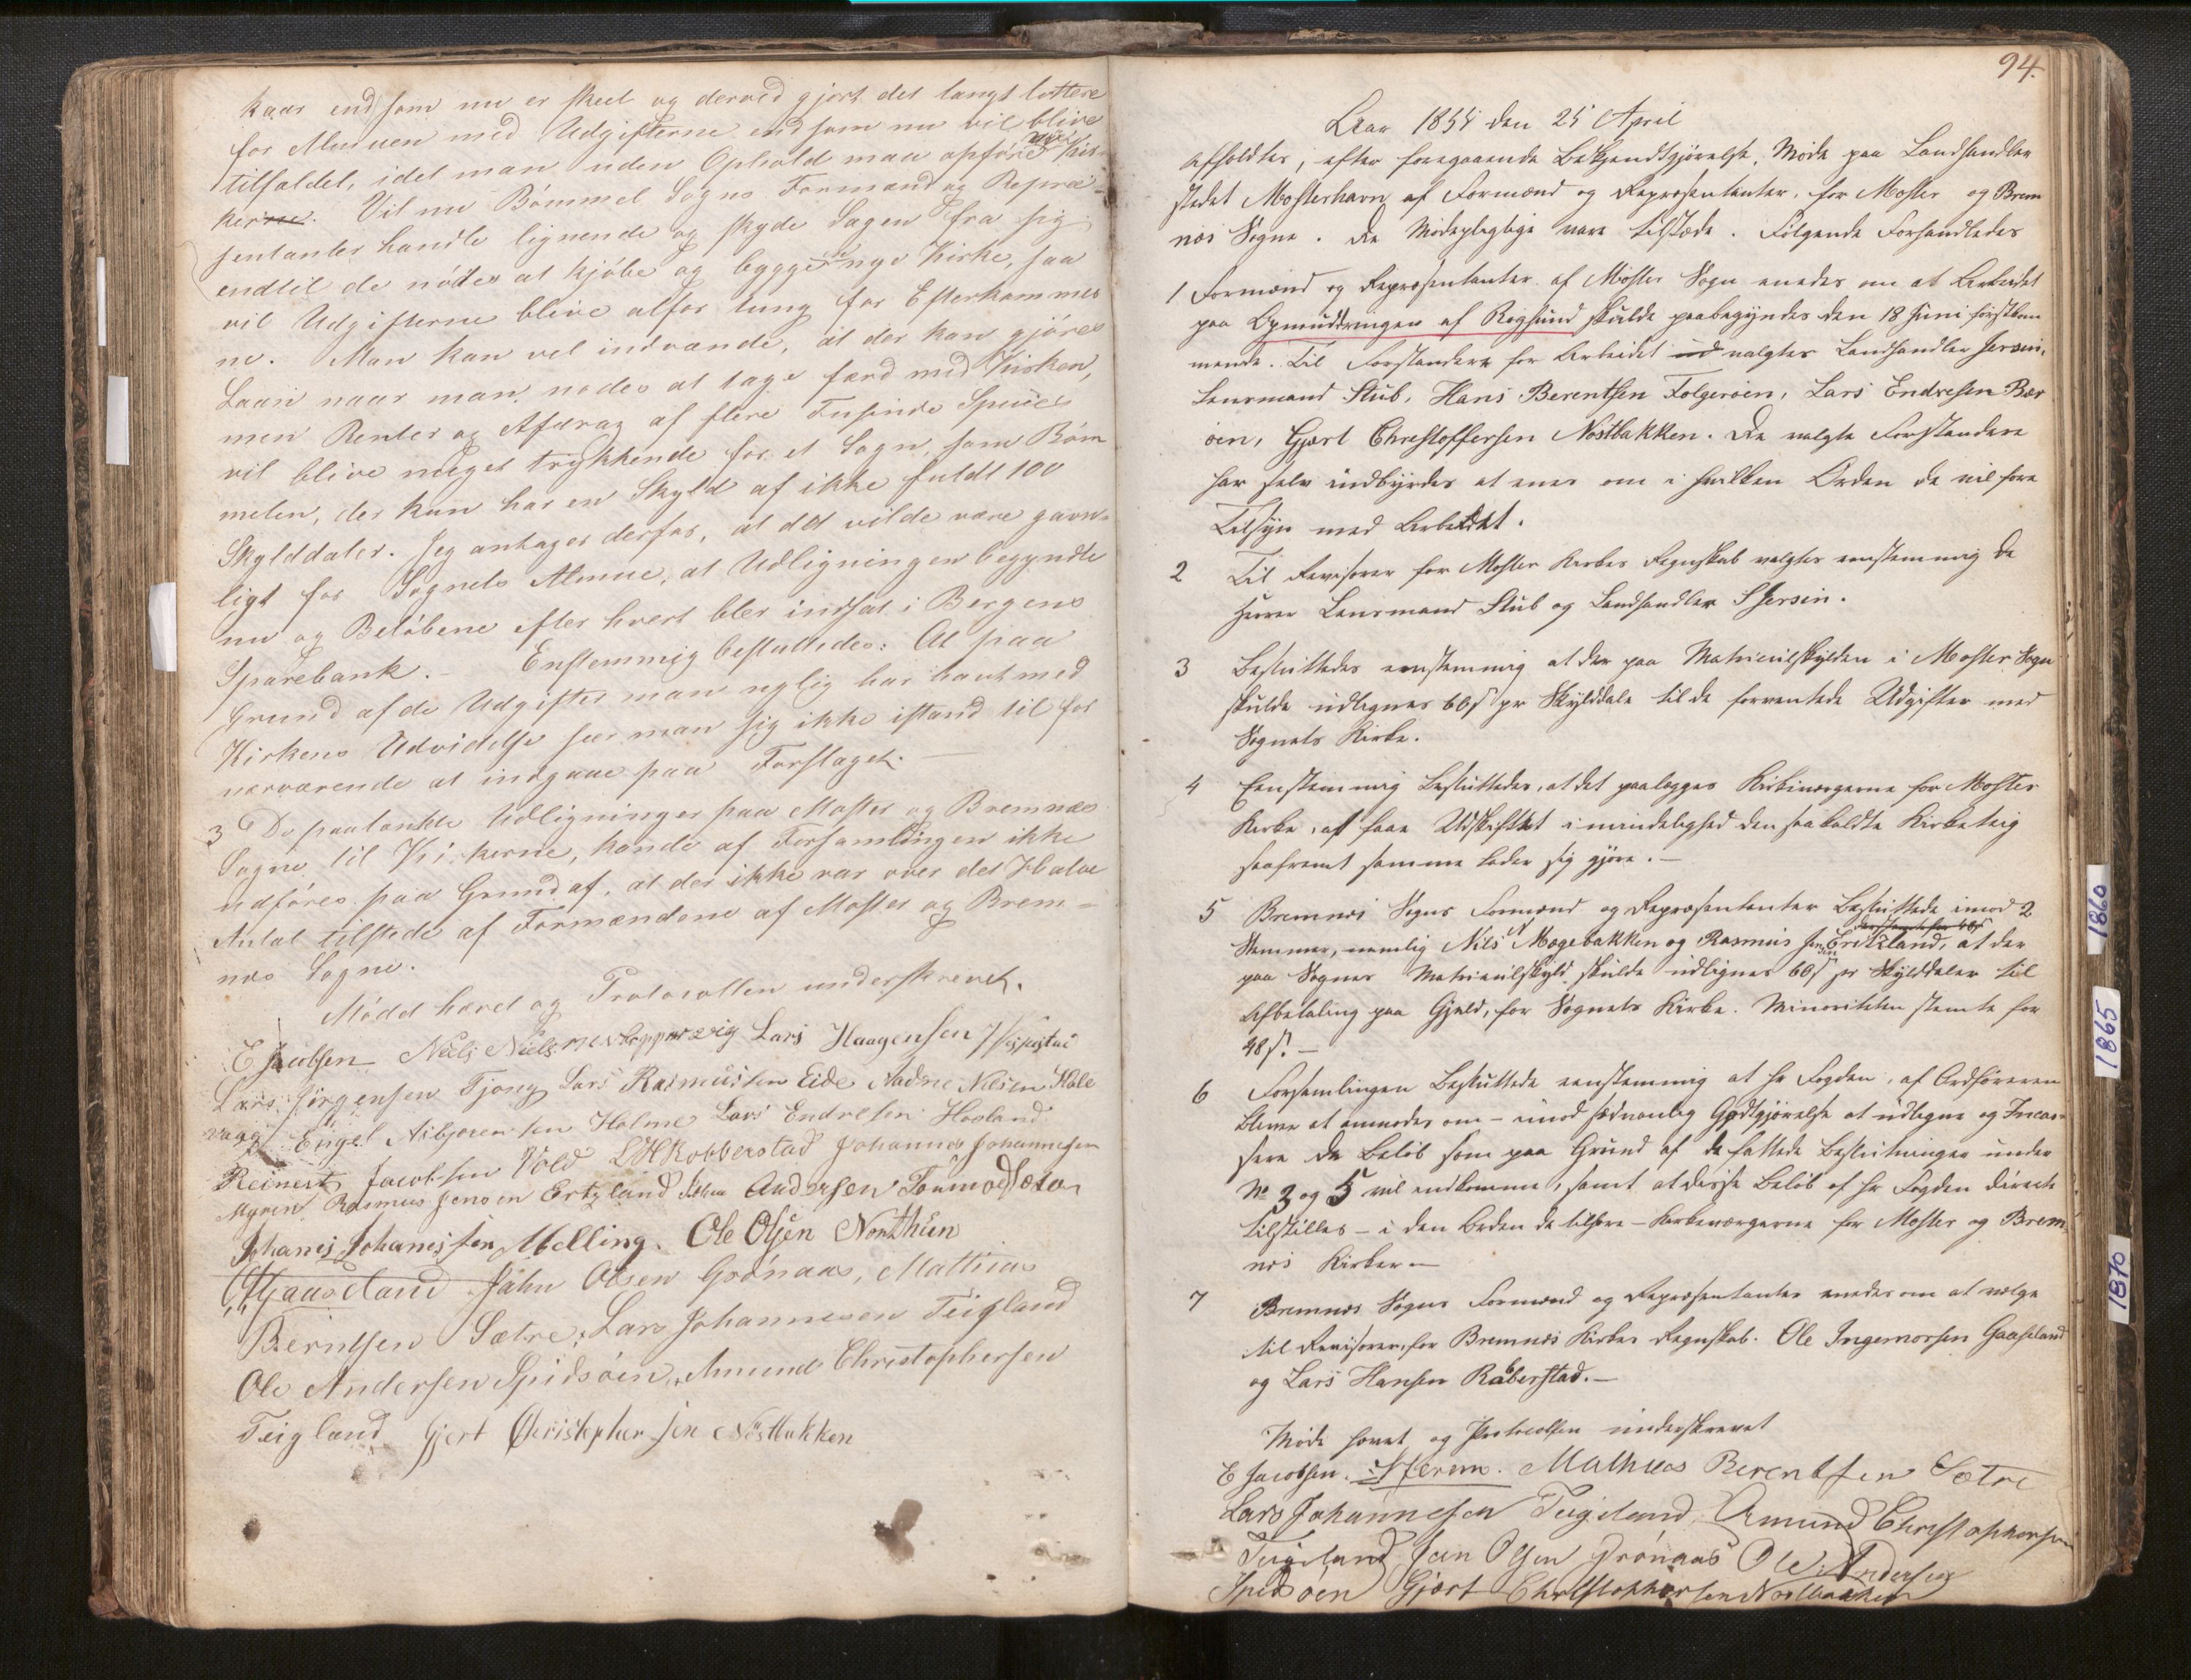 kaar end som nu er skeet og derved gjort det langt lettere
for Almuen med Udgifterne end som nu vil blive
tilfældet, idet man uden Ophold maa opføre nye Kir-
kerne. Vil nu Bömmel Sogns Formænd og Repræ-
sentanter handle lignende og skyde Sagen fra sig
endtil de nödes at kjöbe og bygge nye Kirke, saa
vil Udgifterne blive altfor tung for Efterkommer
ne. Man kan vel indvende, at der kan gjöres
Laan naar man nodes at tage færd med Kirken,
men Renter og Afdrag af flere Tusinde Specier
vil blive meget trykkende for et Sogn, som Böm
melen, der kun har en Skyld af ikke fuldt 100
Skylddaler. Jeg antager derfor, at det vilde være gavn-
ligt for Sognets Almue, at Udligningen begyndte
nu og Beløbene efter hvert blev indsat i Bergens
Sparebank. - Enstemmig besluttedes: At paa
Grund af de Udgifter man nylig har havt med
Kirkens Udvidelse seer man sig ikke istand til for
nærværende at indgaae paa Forslaget. -
3 De paatænkte Udligninger paa Moster og Bremnæs
Sogne til Kirkerne, kunde af Forsamlingen ikke
udföres paa Grund af, at der ikke var over det Halve
Antal tilstede af Formændene af Moster og Brem-
næs Sogne.
Mödet hævet og Protocollen underskrevet.
E Jacobsen Nels Nielsen Lars Haagensen
Lars Jörgensen Tjong Lars Rasmussen Eide Aadne Nilsen Hale
vaag Engel Asbjørnsen Holme Lars Endresen Hovland
Reinert Jacobsen Vold LHRobberstad Johannes Johannesen
Myren Rasmus Jensen Ertzland Johan Andersen
Johanes Johanessen Melling. Ole Olsen Northun
Gaaseland John Olsen Grönaas, Mathias
Berntsen Sætre, Lars Johannesen Teigland
Ole Andersen Spidsöen, Amund Christophersen
Teigland Gjert Christophersen Nöstbakken
94.
Aar 1855 den 25 April
afholdtes, efter foregaaende Bekjendtgjørelse, Møde paa Landhandler
stedet Mosterhavn af Formænd og Repræsentanter, for Moster og Brem
næs Sogne. De Mødepligtige vare tilstede. Følgende Forhandledes
1 Formænd og Repræsentanter af Moster Sogn enedes om at Arbeidet
paa Opmuddringen af Røgsund skulde paabegyndes den 18 Juni førstkom
mende. Til Forstandere for Arbeidet ud valgtes Landhandler Jersin,
Lensmand Stub, Hans Berentsen Folgeröen, Lars Endresen Bær
öen, Gjert Christoffersen Nöstbakken. De valgte Forstandere
har selv indbyrdes at enes om i hvilken Orden de vil føre
Tilsyn med Arbeidet.
2 Til Revisorer for Moster Kirkes Regnskab valgtes eenstemmig de
Herrer Lensmand Stub og Landhandler S Jersin.
3 Besluttedes eenstemmig at der paa Matriculskylden i Moster Sogn
skulde udlignes 60 s pr Skylddale til de forventede Udgifter med
Sognets Kirke.
4 Eenstemmig besluttedes, at det paalægges Kirkeværgerne for Moster
Kirke, at faae Udskiftet i mindelighed den saakaldte Kirketeig
saafremt samme lader sig gjøre. -
5 Bremnæs Sogns Formænd og Repræsentanter besluttede imod 2
Stemmer, nemlig Nils N Møgebakken og Rasmus Jensen Ertzland, at der
paa Sognes Matriculskyld skulde udlignes 60 s pr Skylddaler til
Afbetaling paa Gjeld, for Sognets Kirke. Minoriteten stemte for
48 s. -
6 Forsamlingen besluttede eenstemmig at Hr Fogden, af Ordføreren
bliver at anmodes om - imod sædvanlig Godtgjørelse at udligne og Incas-
sere de Beløb som paa Grund af de fattede Beslutninger under
No 3 og 5 vil indkomme, samt at disse Beløb af Hr Fogden directe
tilstilles - i den Orden de tilhøre - Kirkeværgerne for Moster og Brem
næs Kirker -
7 Bremnæs Sogns Formænd og Repræsentanter enedes om at vælge
til Revisorer, for Bremnæs Kirkes Regnskab. Ole Ingemorsen Gaaseland
og Lars Hansen Rabberstad. -
Møde hævet og Protocollen underskrevet
E Jacobsen. S Jersin. Mathias Berentsen Sætre
Lars Johannesen Teigeland, Amund Christophersen
Teigeland Jon Olsen Grönaas Ole Andersen
Spidsöen Gjert Christophersen Nøstbakken
1860
1865
1870